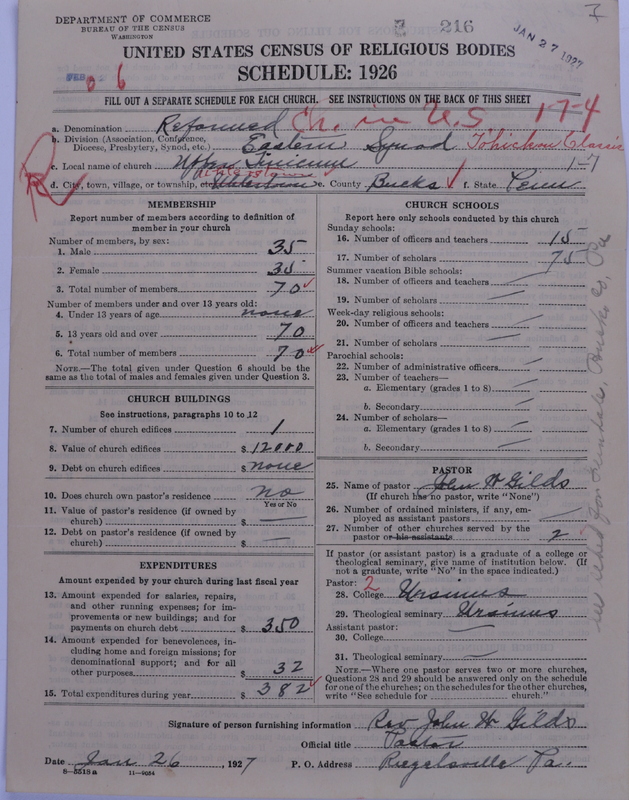 DEPARTMENT OF COMMERCE
BUREAU OF THE CENSUS
WASHINGTON
216
JAN 27 1927
FEB 6
UNITED STATES CENSUS OF RELIGIOUS BODIES
SCHEDULE: 1926
FILL OUT A SEPARATE SCHEDULE FOR EACH CHURCH. SEE INSTRUCTIONS ON THE BACK OF THIS SHEET
17-4
a. Denomination Reformed Ch. in U.S
b. Division (Association, Conference, Diocese, Presbytery, Synod, etc.) Eastern Synod Tohickon Classis
c. Local name of church Upper Tinicum 1-7
d. City, town, village, or township, etc. e. County Bucks f. State Penn
MEMBERSHIP
Report number of members according to definition of
member in your church
Number of members, by sex:
1. Male 35
2. Female 35
3. Total number of members 70
Number of members under and over 13 years old:
4. Under 13 years of age none
5. 13 years old and over 70
6. Total number of members 70
NOTE.—The total given under Question 6 should be the
same as the total of males and females given under Question 3.
CHURCH BUILDINGS
See instructions, paragraphs 10 to 12
7. Number of church edifices 1
8. Value of church edifices $ 12000
9. Debt on church edifices $ none
10. Does church own pastor's residence no
Yes or No
11. Value of pastor's residence (if owned by
church) $ —
12. Debt on pastor's residence (if owned by
church) $ —
EXPENDITURES
Amount expended by your church during last fiscal year
13. Amount expended for salaries, repairs,
and other running expenses; for im-
provements or new buildings; and for
payments on church debt $ 350
14. Amount expended for benevolences, in-
cluding home and foreign missions; for
denominational support; and for all
other purposes $ 32
15. Total expenditures during year $ 382
CHURCH SCHOOLS
Report here only schools conducted by this church
Sunday schools:
16. Number of officers and teachers 15
17. Number of scholars 75
Summer vacation Bible schools:
18. Number of officers and teachers —
19. Number of scholars —
Week-day religious schools:
20. Number of officers and teachers —
21. Number of scholars —
Parochial schools:
22. Number of administrative officers —
23. Number of teachers—
a. Elementary (grades 1 to 8) —
b. Secondary —
24. Number of scholars—
a. Elementary (grades 1 to 8) —
b. Secondary —
PASTOR
25. Name of pastor John W Gilds
(If church has no pastor, write "None")
26. Number of ordained ministers, if any, em-
ployed as assistant pastors —
27. Number of other churches served by the
pastor or his assistants 2
If pastor (or assistant pastor) is a graduate of a college or
theological seminary, give name of institution below. (If
not a graduate, write "No" in the space indicated.)
Pastor: 2
28. College Ursinus
29. Theological seminary Ursinus
Assistant pastor:
30. College —
31. Theological seminary —
NOTE.—Where one pastor serves two or more churches,
Questions 28 and 29 should be answered only on the schedule
for one of the churches; on the schedules for the other churches,
write "See schedule for church."
Signature of person furnishing information Rev John W Gilds
Official title Pastor
Date Jan 26, 1927 P. O. Address Riegelsville Pa.
8-5518a 11-9054